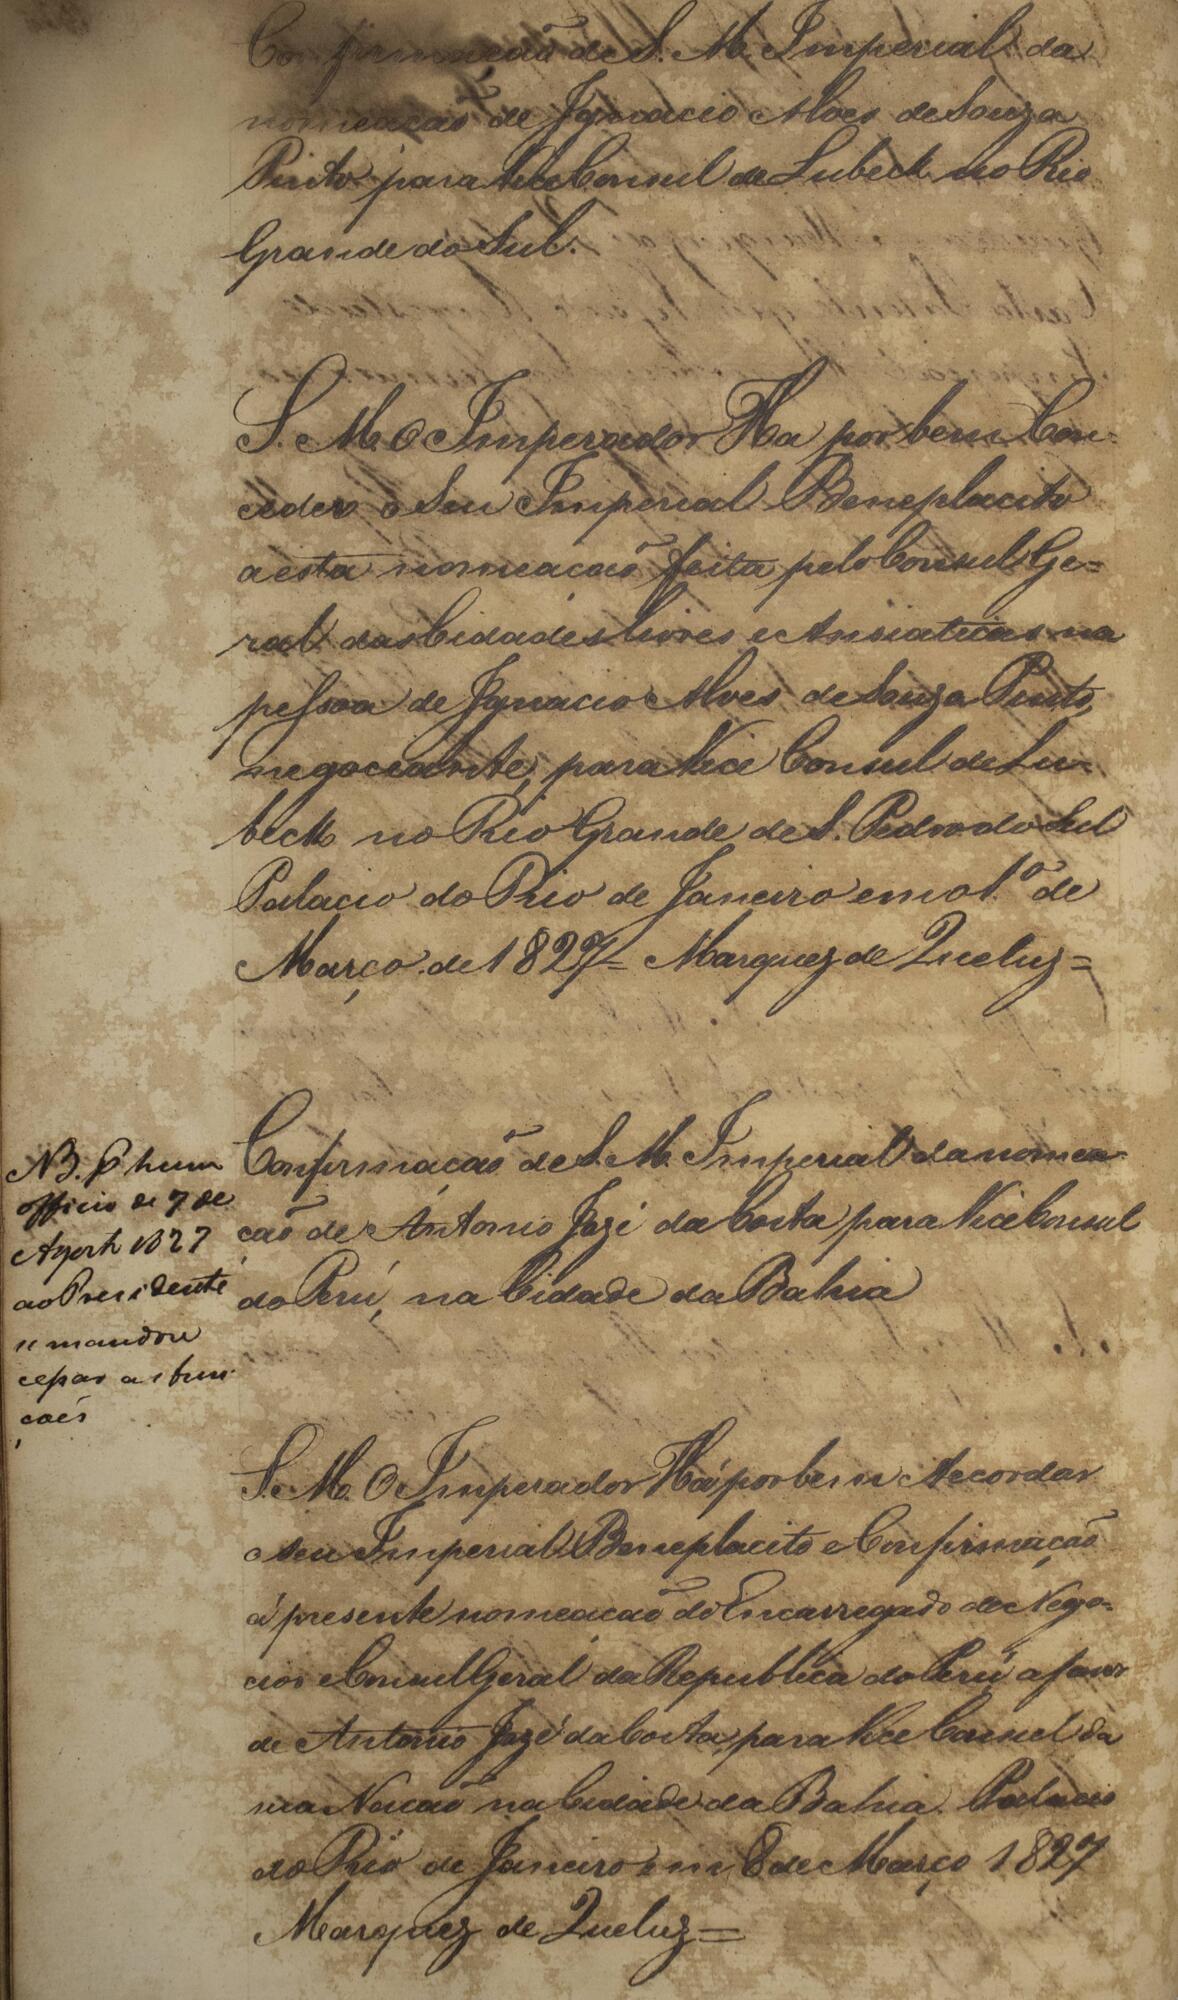 Confirmação de S. M. Imperial da
nomeação de Ignacio Alves de Souza
Pinto para Vice Consul de Lubeck no Rio
Grande do Sul.
S. M. O Imperador Ha por bem Con-
ceder o Seu Imperial Beneplacito
a esta nomeação feita pelo Consul Ge=
ral das Cidades livres e Ansiaticas na
pessoa de Ignacio Alves de Souza Pinto,
negociante, para Vice Consul de Lu-
beck no Rio Grande de S. Pedro do Sul
Palacio do Rio de Janeiro em o 1.º de
Março de 1827 = Marquez de Queluz =
Confirmação de S. M. Imperial da nomea-
ção de Antonio Jozé da Costa para Vice Consul
do Perú, na Cidade da Bahia
NB. P hum
officio de 7 de
Agosto 1827
ao Presidente
se mandou
cepar as fun-
ções
S. M. O Imperador Há por bem Accordar
o seu Imperial Beneplacito e Confirmação
á presente nomeação do Encarregado de Nego-
cios e Consul Geral da Republica do Perú a favor
de Antonio Jozé da Costa, para Vice Consul da
sua Nação na Cidade da Bahia. Palacio
do Rio de Janeiro em 8 de Março 1827
Marquez de Queluz =